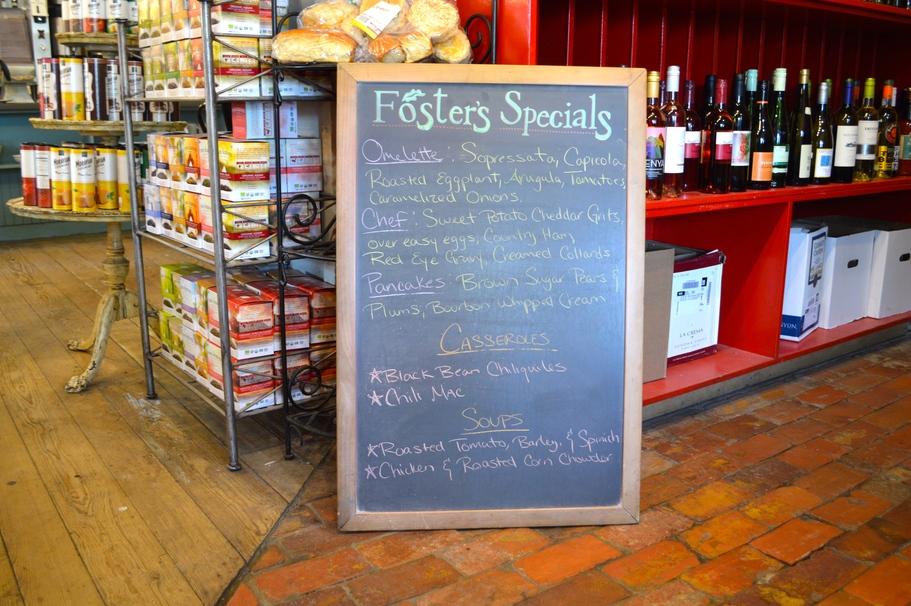 Foster's Specials
Omelette: Sopressata, Capicola,
Roasted Eggplant, Arugula, Tomatoes,
Caramelized Onions.
Chef: Sweet Potato Cheddar Grits,
over easy eggs, Country Ham,
Red Eye Gravy, Creamed Collards
Pancakes: Brown Sugar Pears &
Plums, Bourbon Whipped Cream
CASSEROLES
*Black Bean Chiliquiles
*Chili Mac
SOUPS
*Roasted Tomato, Barley, & Spinich
*Chicken & Roasted Corn Chowder
LA CREMA